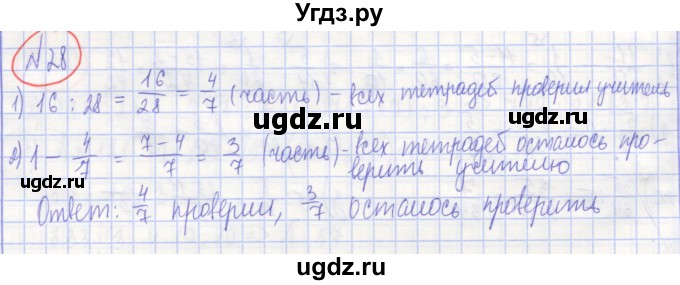 Угдз.ру
№28
1) 16 : 28 = 16/28 = 4/7 (часть) - всех тетрадей проверил учитель
2) 1 - 4/7 = 7-4/7 = 3/7 (часть) - всех тетрадей осталось про-
верить учителю
Ответ: 4/7 проверил, 3/7 осталось проверить
ugdz.ru
ugdz.ru
ugdz.ru
ugdz.ru
ugdz.ru
Угдз.ру